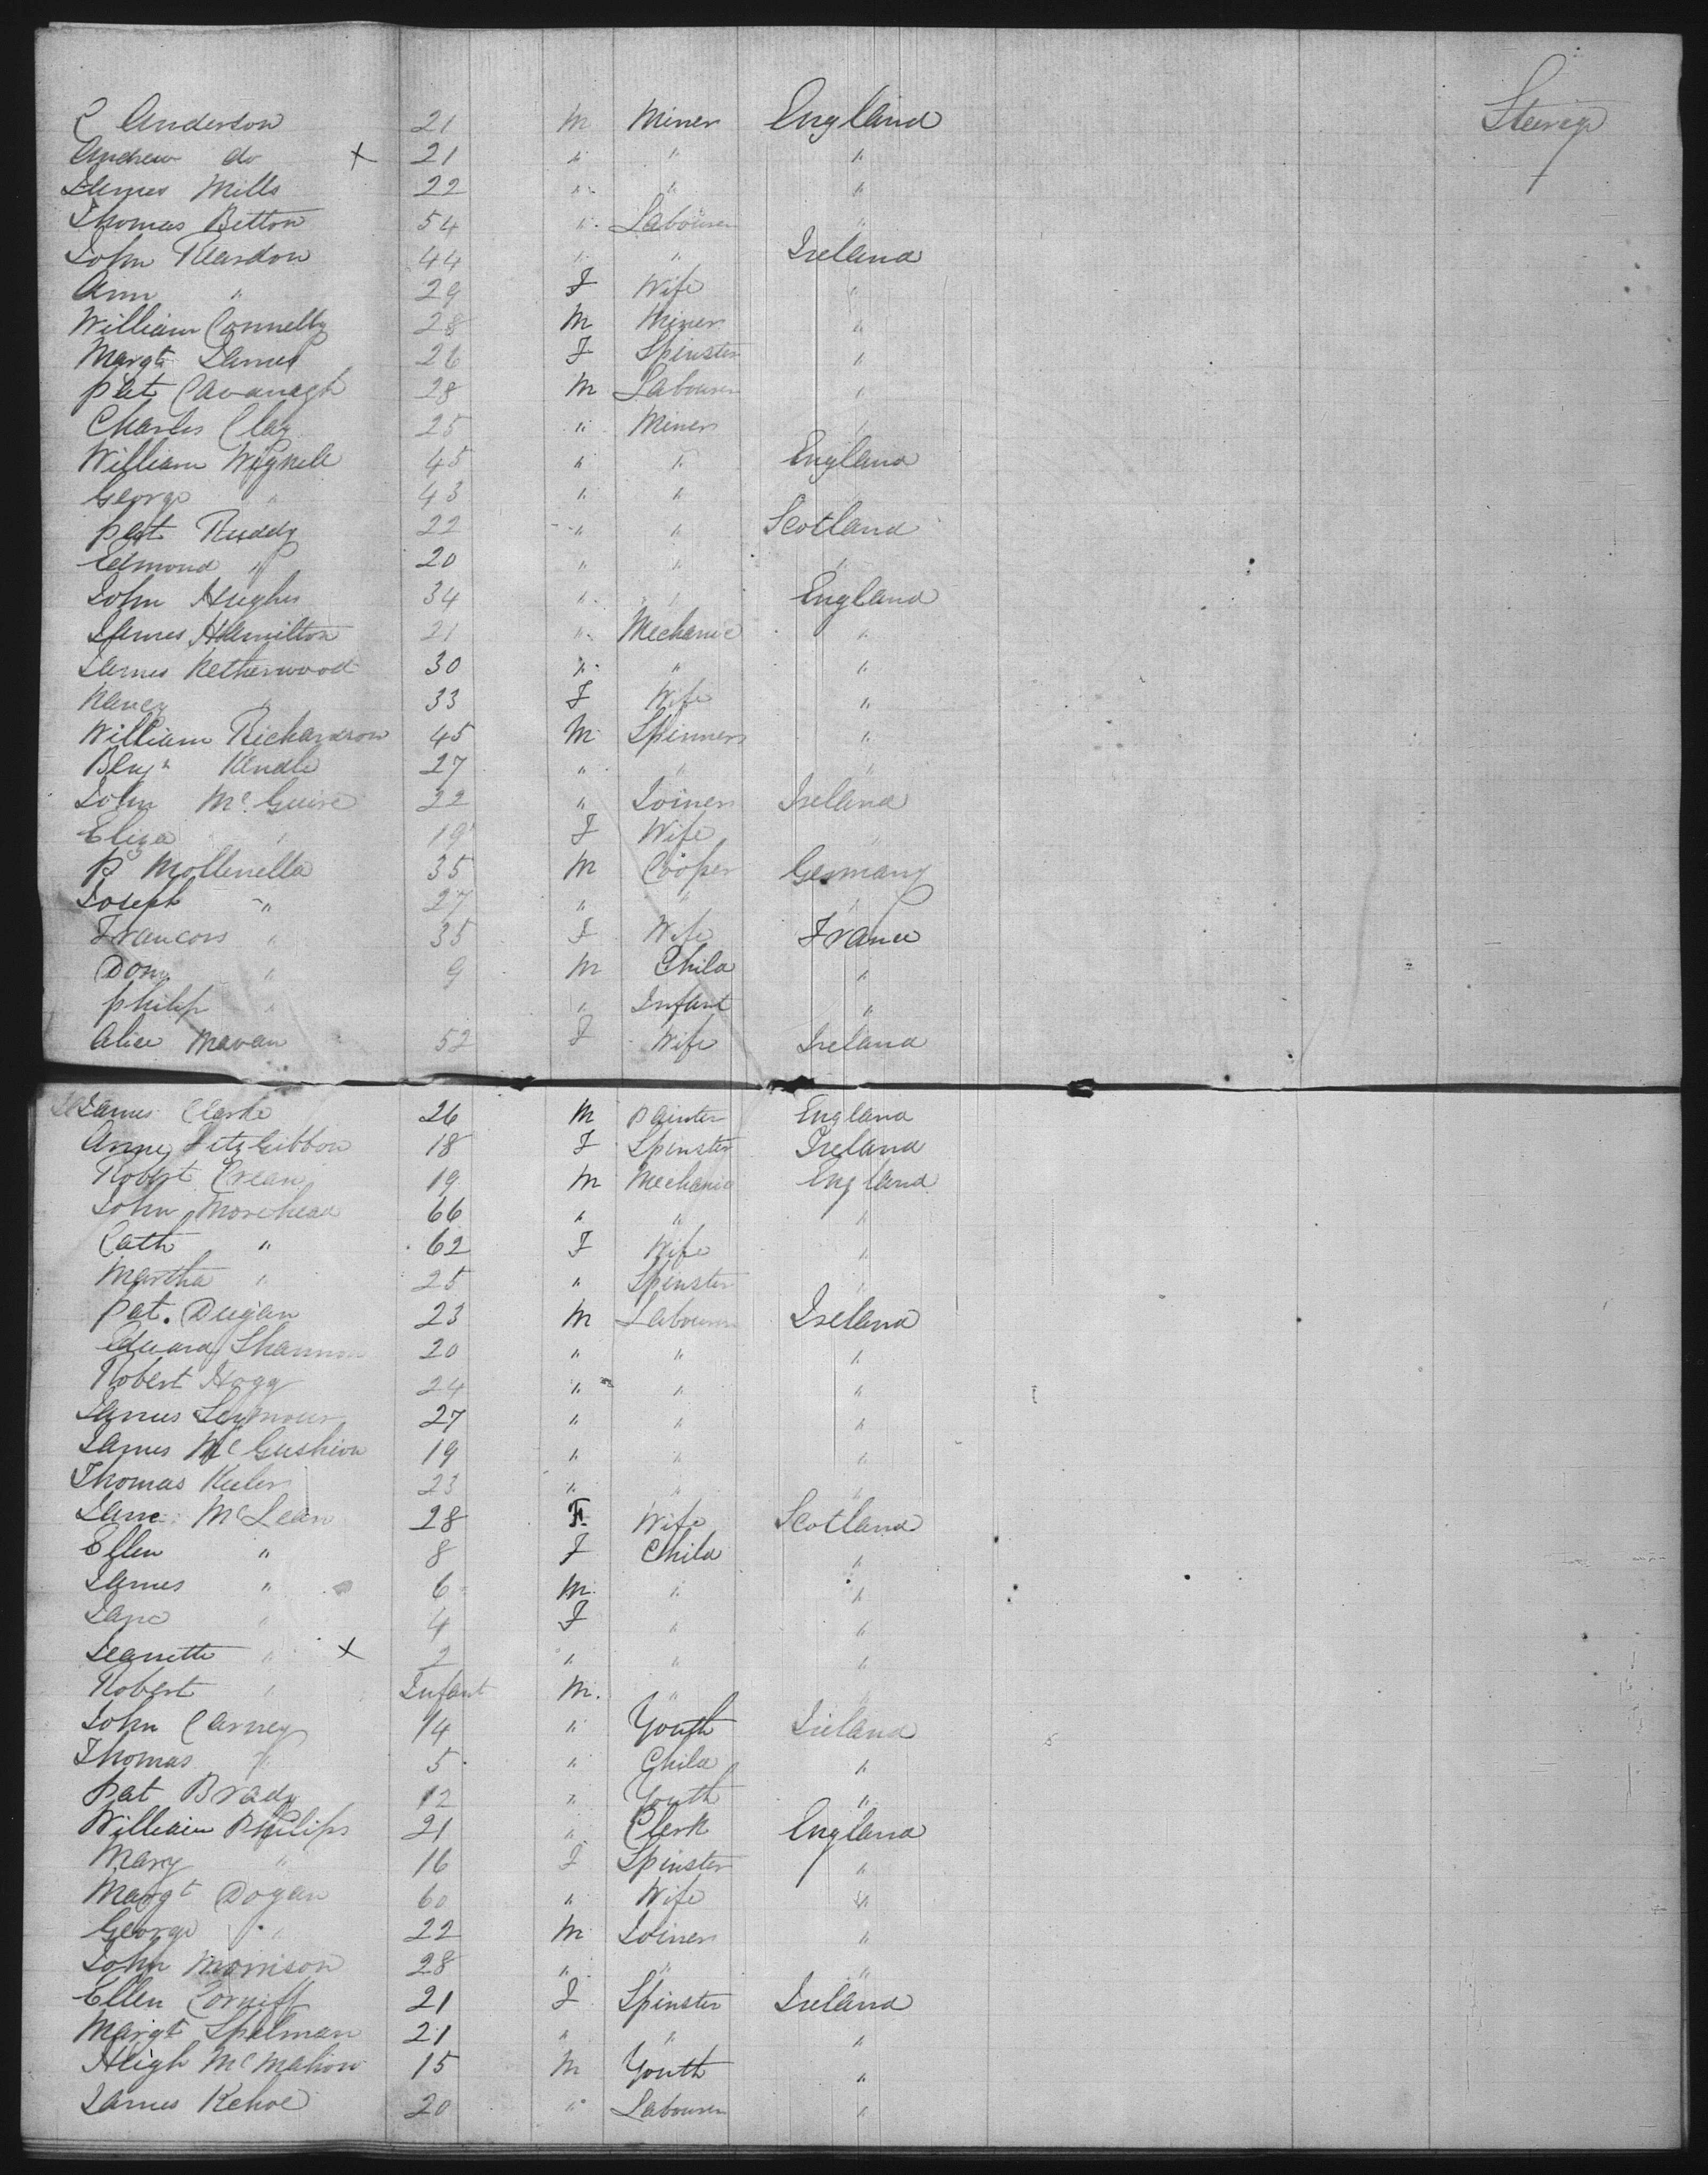 C Anderson 21 M Miner England Steerage
Andrew do × 21 " " "
James Mills 22 " " "
Thomas Betton 54 " Labourer "
John Reardon 44 " " Ireland
Ann " 29 F Wife "
William Connelly 28 M Miner "
Margt James 26 F Spinster "
Pat Cavanagh 28 M Labourer "
Charles Clay 25 " Miner "
William Wignell 45 " " England
George " 43 " " "
Pat Ruddy 22 " " Scotland
Edmond " 20 " " "
John Hughes 34 " " England
James Hamilton 21 " Mechanic "
James Netherwood 30 " " "
Nancy " 33 F Wife "
William Richardson 45 M Spinner "
Benjn Kendle 27 " " "
John McGuire 22 " Joiner Ireland
Eliza " 19 F Wife "
P Mollenella 35 M Cooper Germany
Joseph " 27 " " "
Francois " 35 F Wife France
Dom " 9 M Child "
Philip " " Infant "
Alice Mavan 52 F Wife Ireland
James Clarke 26 M Painter England
Anne FitzGibbon 18 F Spinster Ireland
Robert Crean 19 M Mechanic England
John Morehead 66 " " "
Cath " 62 F Wife "
Martha " 25 " Spinster "
Pat. Dugan 23 M Labourer Ireland
Edward Shannon 20 " " "
Robert Hogg 24 " " "
James Seymour 27 " " "
James McGushion 19 " " "
Thomas Keeler 23 " " "
Jane McLean 28 F Wife Scotland
Ellen " 8 F Child "
James " 6 M " "
Jane " 4 F " "
Jeanette " × 2 " " "
Robert " Infant M. " "
John Carney 14 " Youth Ireland
Thomas " 5 " Child "
Pat Brady 12 " Youth "
William Philips 21 " Clerk England
Mary " 16 F Spinster "
Margt Dogan 60 " Wife "
George " 22 M Joiner "
John Morrison 28 " " "
Ellen Corniff 21 F Spinster Ireland
Margt Spelman 21 " " "
Hugh McMahon 15 M Youth "
James Kehoe 20 " Labourer "